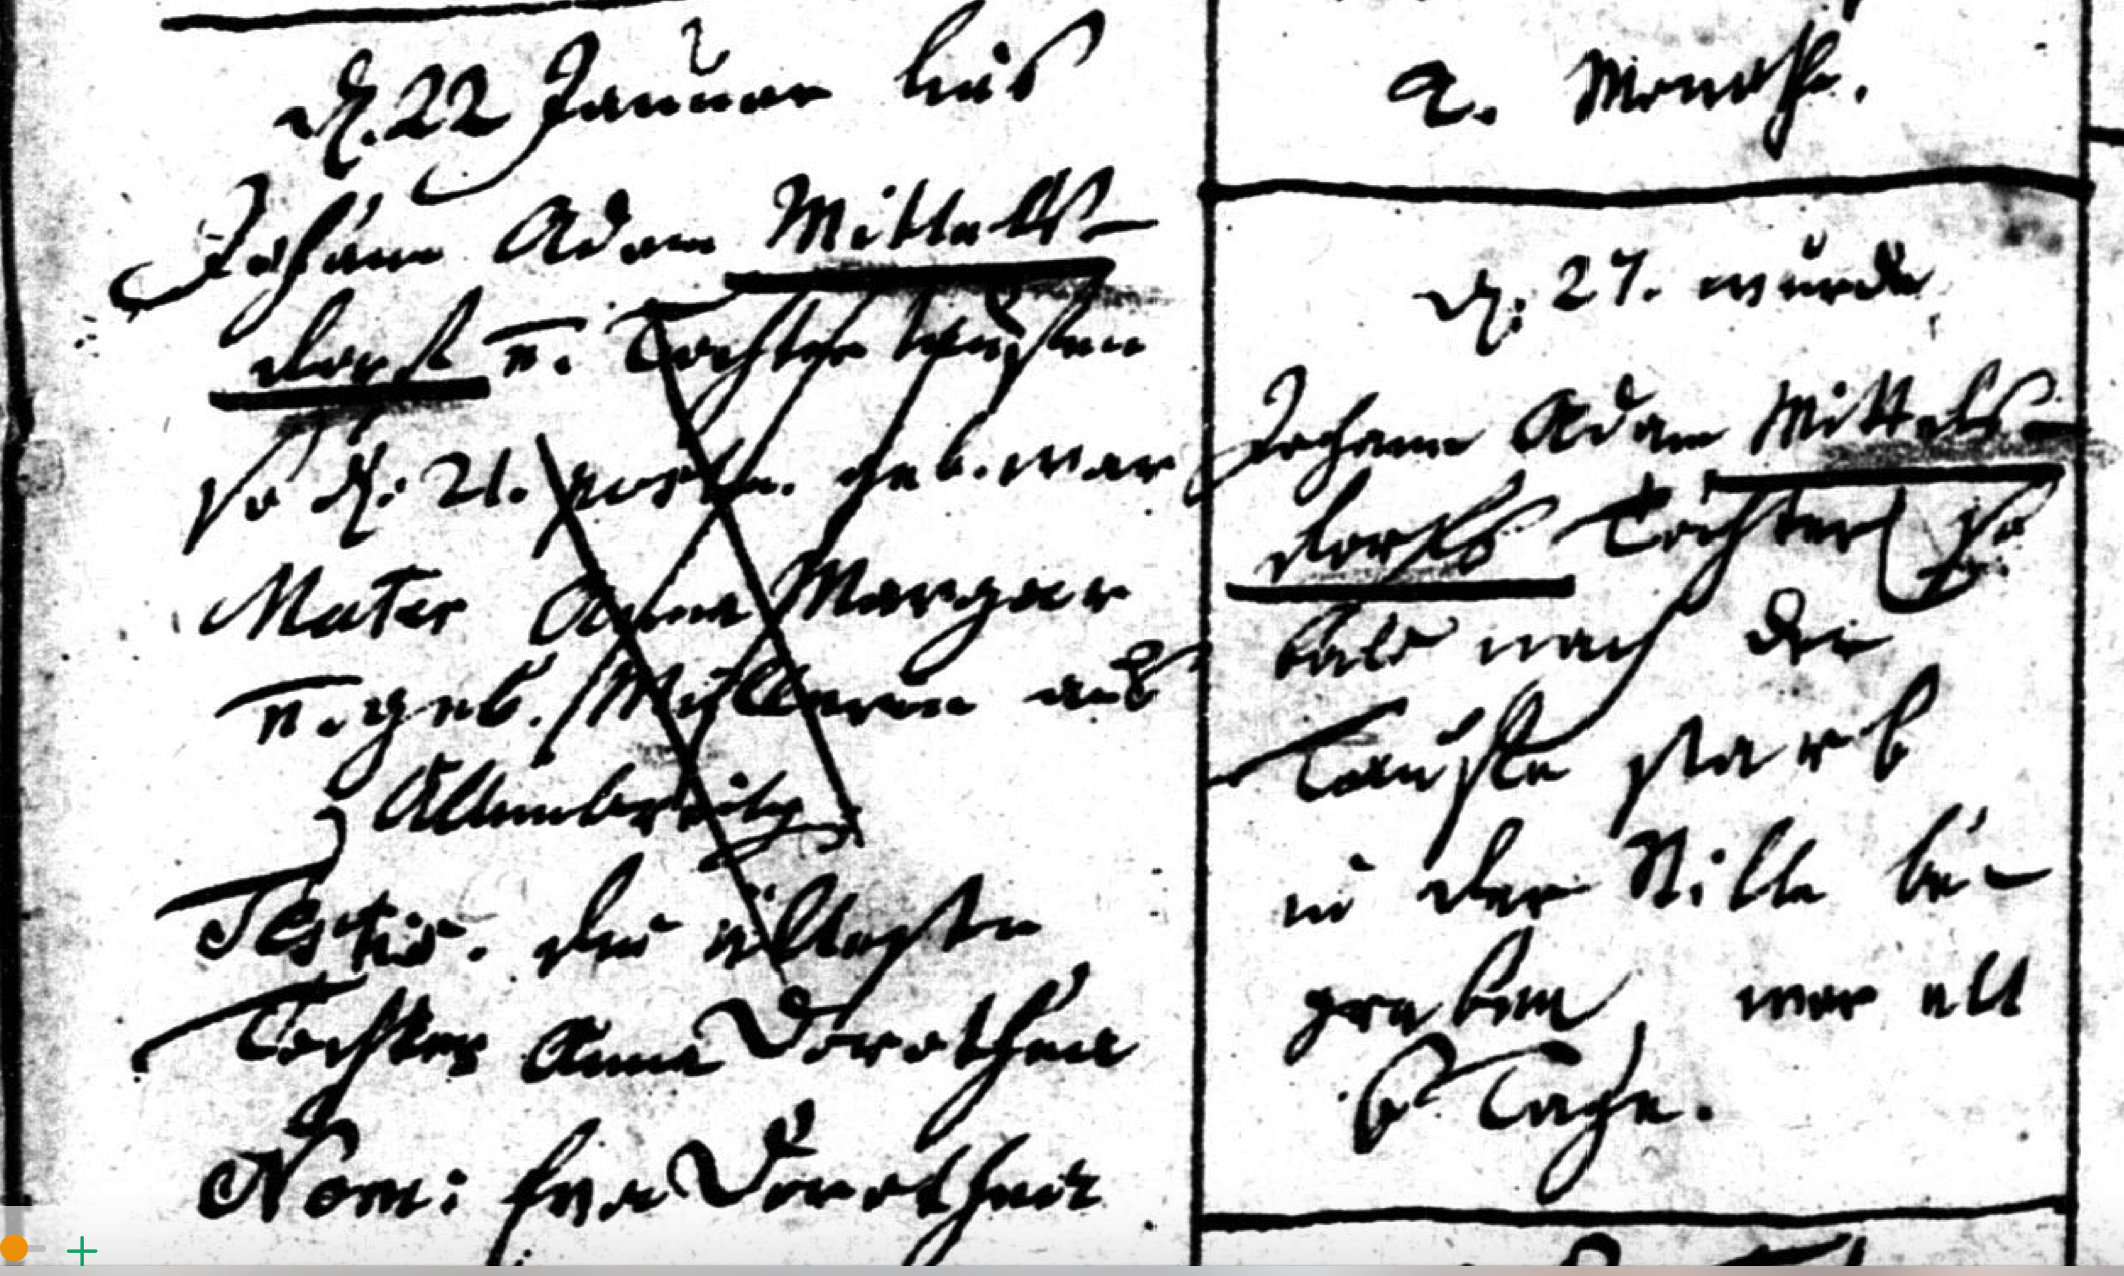 d. 22 Januar ließ
Johann Adam Mittels-
dorf e. Tochter tauffen
so d. 21. geb. war
Mater Anna Margar
e. geb. Müllerin aus
Testis. die älteste
Tochter Anna Dorothea
Nom: Eva Dorothea
2. Monathe.
d. 27. wurde
Johann Adam Mittels-
dorfs Töchterl. so
bald nach der
Tauffe starb
in der Stille be-
graben, war alt
6 Tage.